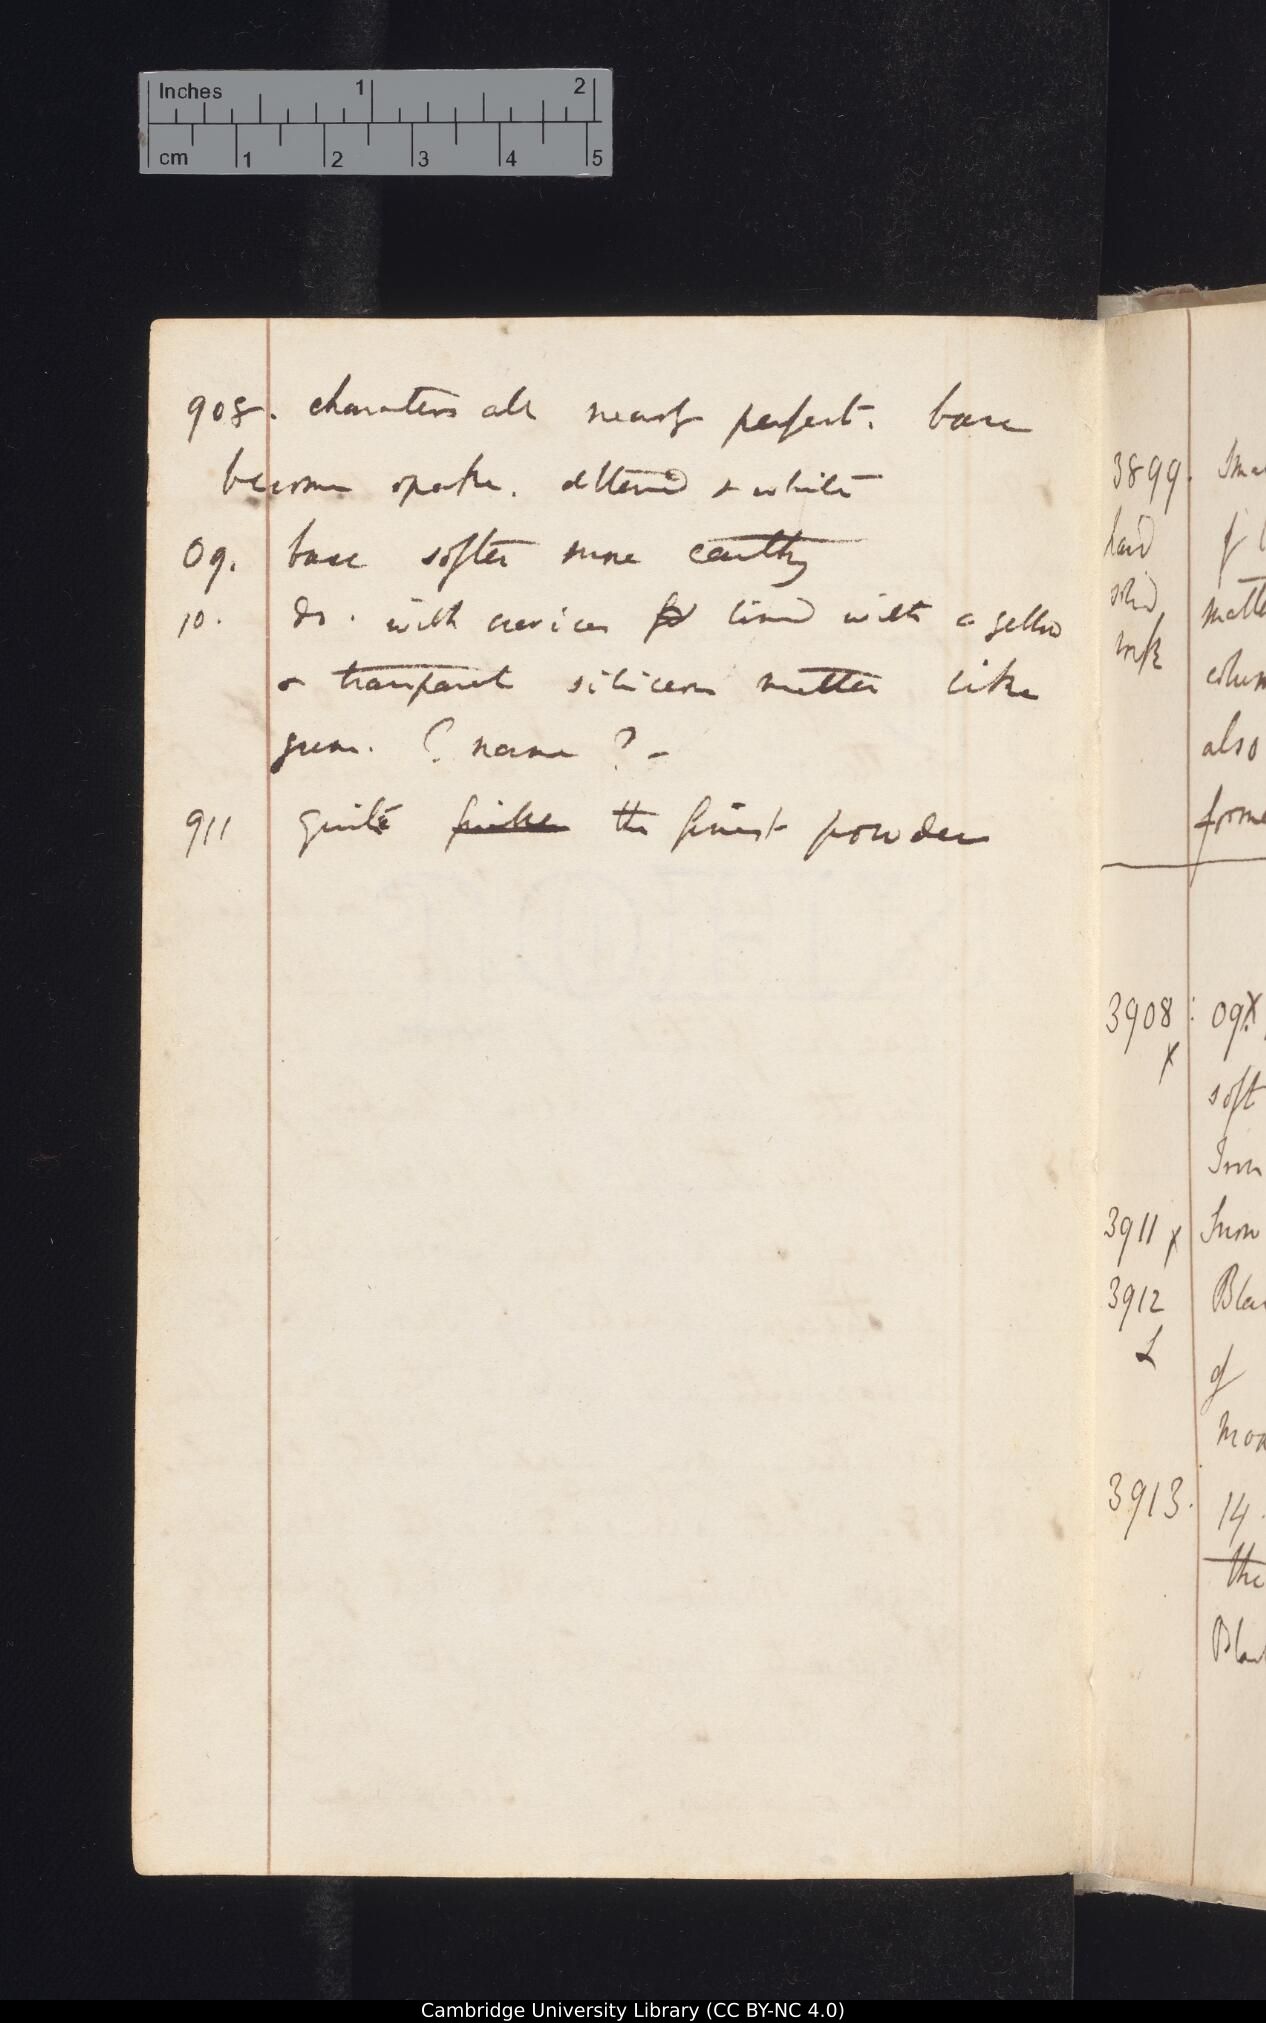 Inches 1 2
cm 1 2 3 4 5
908. characters all nearly perfect. base
become opake. altered & white
09. base softer more earthy
10. do. with crevices lined with a yellow
& transparent siliceous matter like
gum. (? name ?) –
911 quite the finest powder
3899.
hard
solid
matte
also
forme
3908 : 09X
x
soft
Iron
3911 x Snow
3912 Bla
L of
3913. 14.
the
Bla
Cambridge University Library (CC BY-NC 4.0)